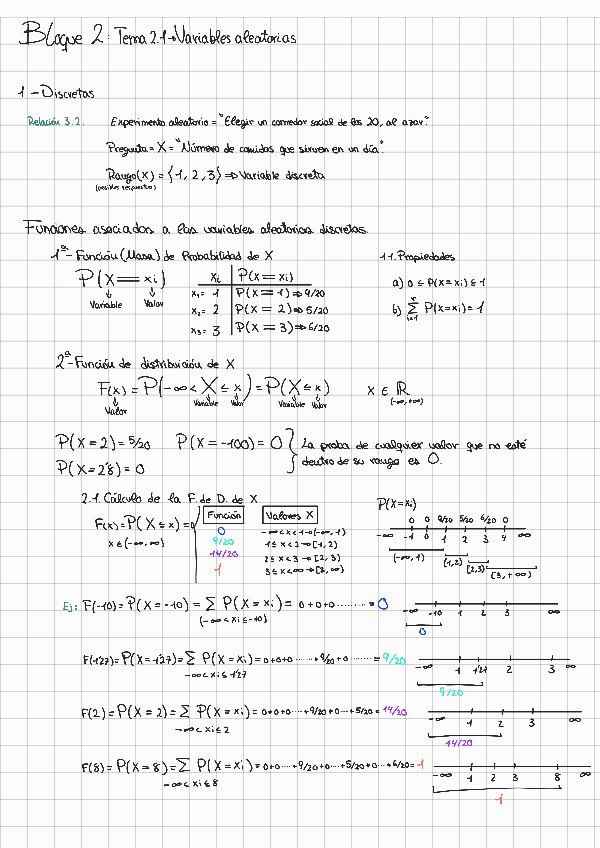 Bloque 2: Tema 2.1→Variables aleatorias
1-Discretas
Relación 3.2. Experimento aleatorio = "Elegir un comedor social de los 20, al azar".
Pregunta = X = "Número de comidas que sirven en un día".
Rango(X) = {1, 2, 3} ⇒ Variable discreta
(posibles respuestas)
Funciones asociadas a las variables aleatorias discretas.
1ª-Función (Masa) de Probabilidad de X
P(X = xi)
Variable Valor
xi P(X = xi)
x₁= 1 P(X = 1) ⇒ 9/20
x₂= 2 P(X = 2) ⇒ 5/20
x₃= 3 P(X = 3) ⇒ 6/20
1.1. Propiedades
a) 0 ≤ P(X=xi) ≤ 1
b) ∑ P(X=xi) = 1
2ª-Función de distribución de X
F(x) = P(-∞ < X ≤ x) = P(X ≤ x) X ∈ ℝ
(-∞,+∞)
Valor Variable Valor Variable Valor
P(X = 2) = 5/20 P(X = -100) = 0
P(X = 2'8) = 0
La proba de cualquier valor que no esté
dentro de su rango es 0.
2.1. Cálculo de la F. de D. de X
F(x) = P(X ≤ x) =
x ∈ (-∞, ∞)
Función Valores X
0 -∞ < x < 1 → (-∞, 1)
9/20 1 ≤ x < 2 → [1, 2)
14/20 2 ≤ x < 3 → [2, 3)
1 3 ≤ x < ∞ → [3, ∞)
P(X=xi)
0 0 9/20 5/20 6/20 0
-∞ -1 0 1 2 3 4 ∞
(-∞, 1) [1,2) [2,3) [3, +∞)
Ej: F(-10) = P(X = -10) = ∑ P(X = xi) = 0+0+0 ......... = 0
(-∞ < xi ≤ -10)
-∞ -10 1 2 3 ∞
0
F(1'27) = P(X = 1'27) = ∑ P(X = xi) = 0+0+0 ......+9/20+0 ....... = 9/20
-∞ < xi ≤ 1'27
-∞ 1 1'27 2 3 ∞
9/20
F(2) = P(X = 2) = ∑ P(X = xi) = 0+0+0 ......+9/20+0....+5/20 = 14/20
-∞ < xi ≤ 2
-∞ 1 2 3 ∞
14/20
F(8) = P(X = 8) = ∑ P(X = xi) = 0+0+0 ......+9/20+0....+5/20+0....+6/20 = 1
-∞ < xi ≤ 8
-∞ 1 2 3 8 ∞
1